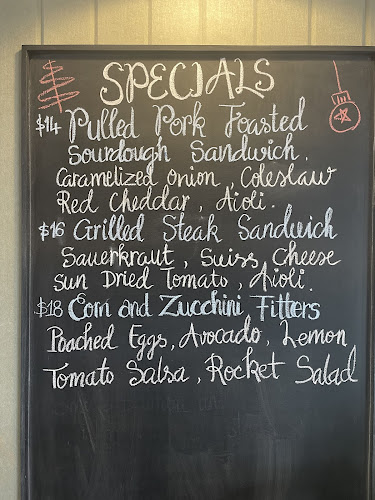 SPECIALS
$14 Pulled Pork Toasted
Sourdough Sandwich.
Caramelized onion, Coleslaw
Red Cheddar, Aioli.
$16 Grilled Steak Sandwich
Sauerkraut, Suiss Cheese
Sun Dried Tomato, Aioli.
$18 Corn and Zucchini Fitters
Poached Eggs, Avocado, Lemon,
Tomato Salsa, Rocket Salad